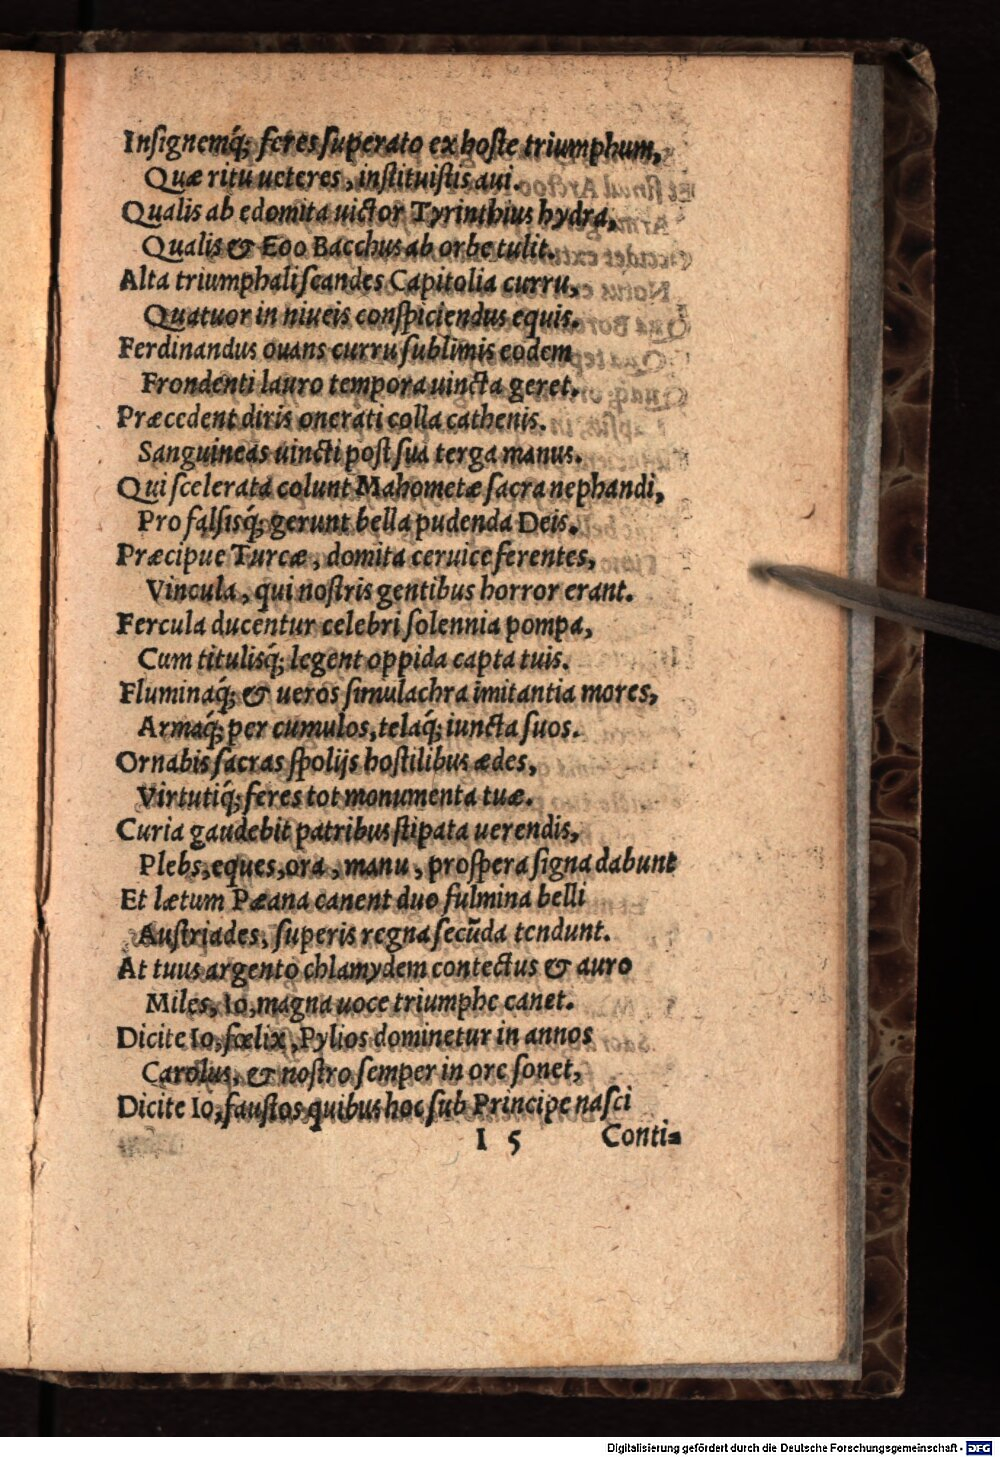 Inſignemq́; feres ſuperato ex hoſte triumphum,
Quæ ritu ueteres, inſtituiſtis aui.
Qualis ab edomita uictor Tyrinthius hydra,
Qualis & Eoo Bacchus ab orbe tulit.
Alta triumphali ſcandes Capitolia curru,
Quatuor in niueis conſpiciendus equis.
Ferdinandus ouans curru ſublimis eodem
Frondenti lauro tempora uincta geret.
Præcedent diris onerati colla cathenis.
Sanguineas uincti poſt ſua terga manus.
Qui ſcelerata colunt Mahometæ ſacra nephandi,
Pro falſisq́; gerunt bella pudenda Deis.
Præcipue Turcæ, domita ceruice ferentes,
Vincula, qui noſtris gentibus horror erant.
Fercula ducentur celebri ſolennia pompa,
Cum titulisq́; legent oppida capta tuis.
Fluminaq́; & ueros ſimulachra imitantia mores,
Armaq́; per cumulos, telaq́; iuncta ſuos.
Ornabis ſacras ſpolijs hoſtilibus ædes,
Virtutiq́; feres tot monumenta tuæ.
Curia gaudebit patribus ſtipata uerendis,
Plebs, eques, ora, manu, proſpera ſigna dabunt
Et lætum Pæana canent duo fulmina belli
Auſtriades, ſuperis regna ſecũda tendunt.
At tuus argento chlamydem contectus & auro
Miles, Io, magna uoce triumphe canet.
Dicite Io, fœlix, Pylios dominetur in annos
Carolus, & noſtro ſemper in ore ſonet,
Dicite Io, fauſtos quibus hoc ſub Principe naſci
I 5 Conti⸗
Digitalisierung gefördert durch die Deutsche Forschungsgemeinschaft - DFG